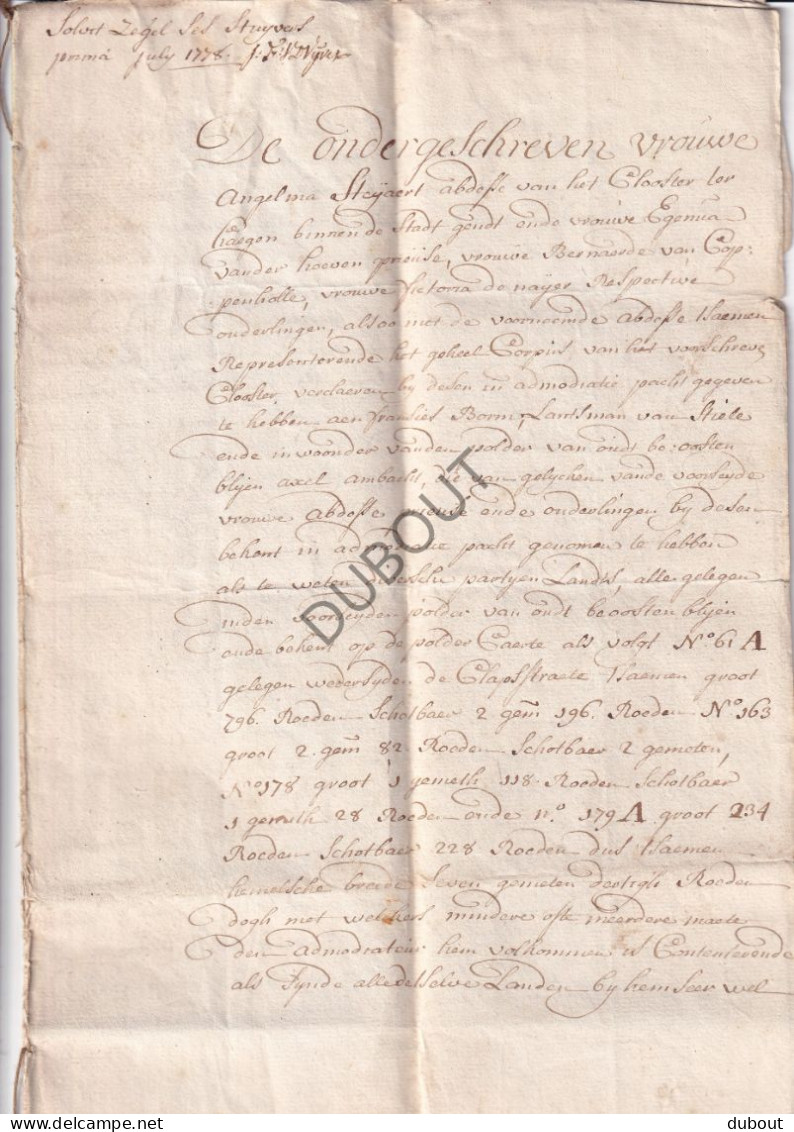 Solvit Zegel Ses Stuyvers
prima july 1778
De ondergeschreven vrouwe
Angelina Steÿaert abdesse van het Clooster ter
haegen binnen de Stadt gendt ende vrouwe Egenia
vander hoeven prieuse, vrouwe Bernaerde van Cop=
=penholle, vrouwe Victoria de naÿer Respective
ouderlingen, alsoo met de voornoemde abdesse tsaemen
Representerende het geheel Corpus van het voorschreve
Clooster, verclaeren by desen in admodiatie pacht gegeven
te hebben aen fransies Borm, Lantsman van Stiele
ende inwoonder vanden polder van oudt beoosten
blijen axel ambacht, die van gelycken vande voorseyde
vrouwe abdesse prieuse ende ouderlingen by desen
bekent in pacht genomen te hebben
als te weten diversche partyen Landts, alle gelegen
inden voorseyden polder van oudt beoosten blijen
ende bekent op de polder Caerte als volgt N.o 61 A
gelegen wedersyden de Clapstraete tsaemen groot
796. Roeden Schotbaer 2 gem 196. Roeden N.o 163
groot 2. gem 82 Roeden Schotbaer 2 gemeten,
N.o 178 groot 1 gemeth 118. Roeden Schotbaer
1 gemeth 28 Roeden ende n.o 179 A groot 234
Roeden Schotbaer 228 Roeden dus tsaemen
hemelsche breede seven gemeten dertigh Roeden
dogh met welckers mindere ofte meerdere maete
den admodiateur hem volkommen is Contenterende
als synde alle deselve Landen by hem seer wel
DUBOUT
© delcampe.net
dubout